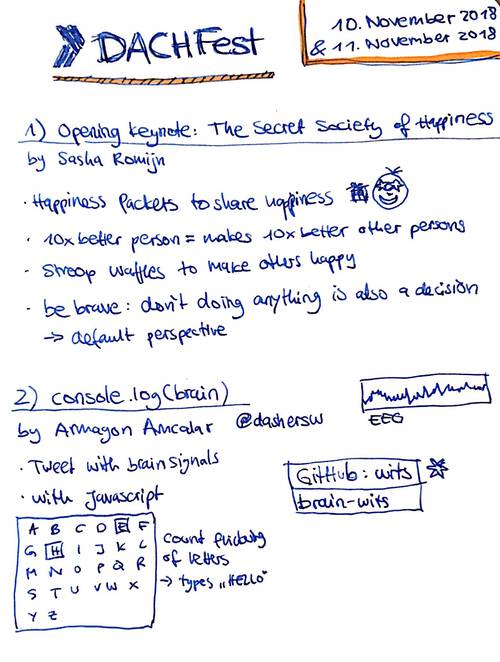 DACHFest
10. November 2018
& 11. November 2018
1) Opening Keynote: The Secret Society of Happiness
by Sasha Romijn
· Happiness Packets to share happiness
· 10x better person = makes 10x better other persons
· Stroop waffles to make others happy
· be brave: don't doing anything is also a decision
→ default perspective
2) console.log(brain)
by Armagan Amcalar @dashersw
EEG
· Tweet with brain signals
· with Javascript
GitHub: wits
brain-wits
A B C D E F
G H I J K L
M N O P Q R
S T U V W X
Y Z
count flickering
of letters
→ types „HELLO"